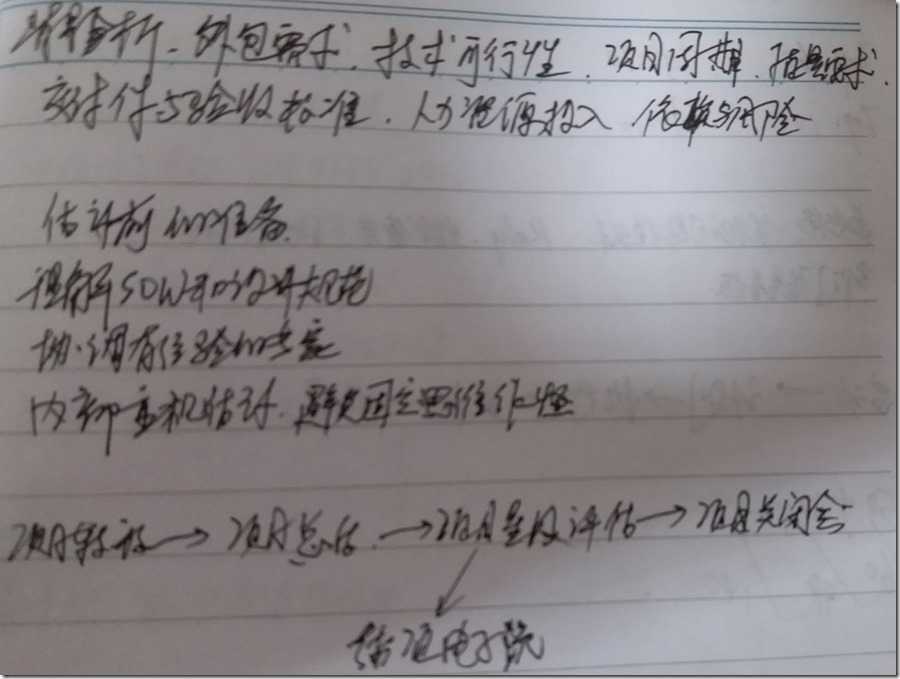 分析、外包需求、技术可行性、项目周期、质量要求、
交付件与验收标准、人力资源投入、依赖与风险
估计前的准备
理解SOW和设计规范
协调有经验的专家
内部盲机估计、避免固定思维作怪
项目→项目总结→项目星级评估→项目关闭会
结项电子流